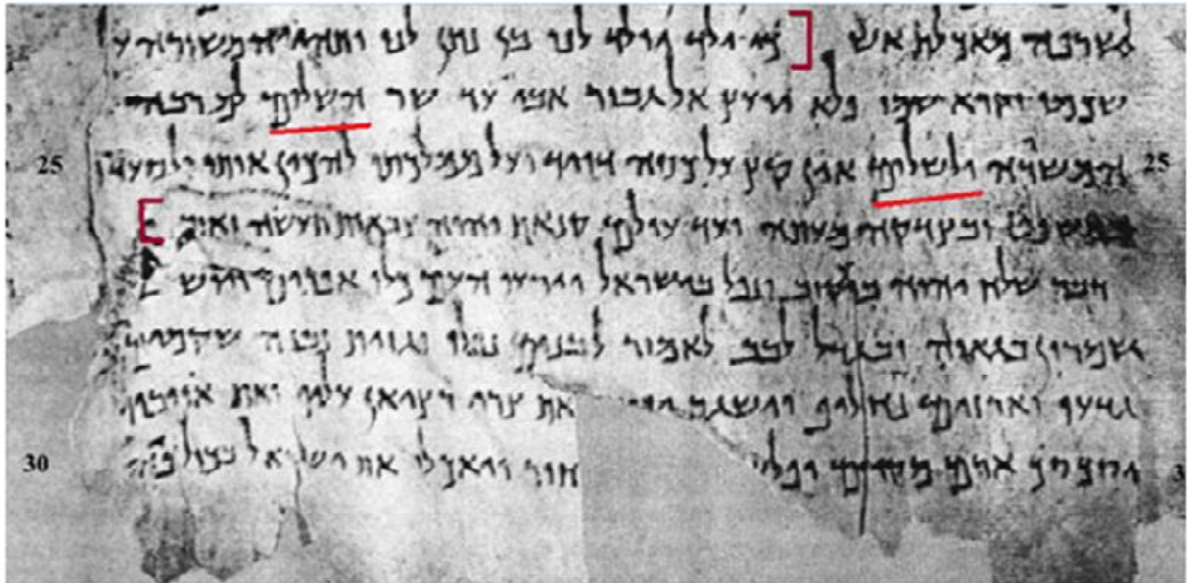 לשרפה מאכלת אש ] כי ילד יולד לנו בן נתן לנו ותהי המשורה ע
שכמו וקרא שמו פלא יועץ אל גבור אבי עד שר השלום לםרבה
25 המשורה ולשלום אין קץ על כסה דויד ועל ממלכתו להכין אותו ולסעדה 25
במשפט ובצדקה מעתה ועד עולם קנאת יהוה צבאות תעשה זואת [
דבר שלח יהוה ביעקוב ונפל בישראל וידעו העם כלו אפרים
שמרון בגאוה ובגודל לבב לאמור לבנים נפלו וגזית נבנה שקמים
גדעו וארזים נחליף וישגב את צרי רצין עליו ואת אויביו
ארם מקדם חור ויאכלו את ישראל בכול פה 30